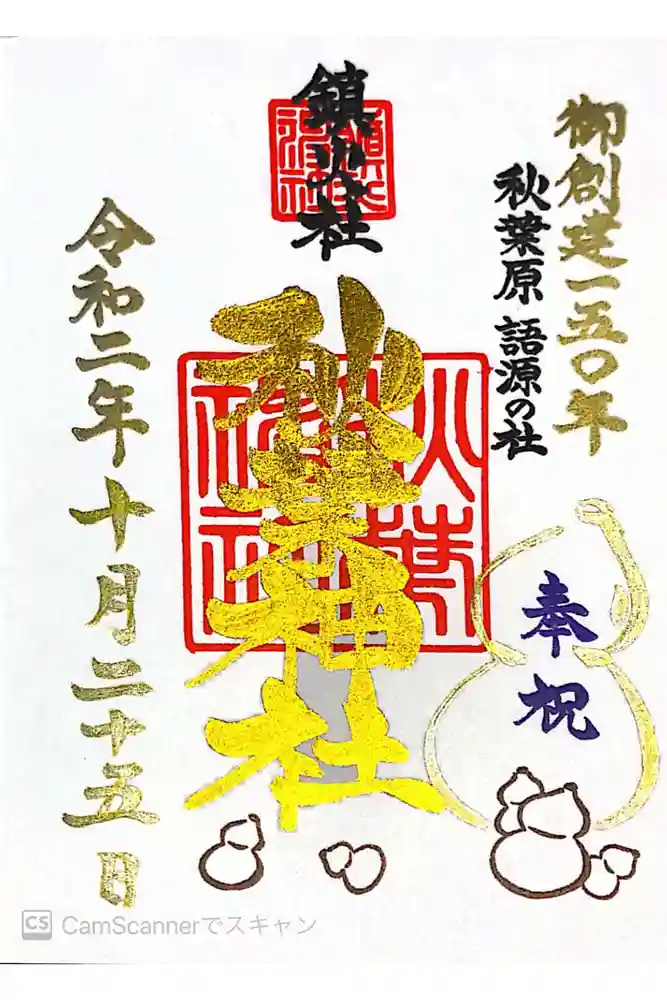 御創建一五〇年
秋葉原 語源の社
鎮火社
秋葉神社
奉祝
令和二年十月二十五日
CS CamScannerでスキャン